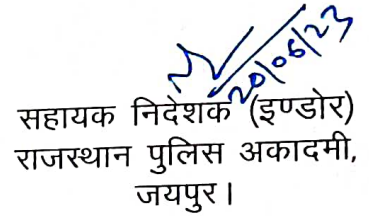 20/06/23
सहायक निदेशक (इण्डोर)
राजस्थान पुलिस अकादमी,
जयपुर।